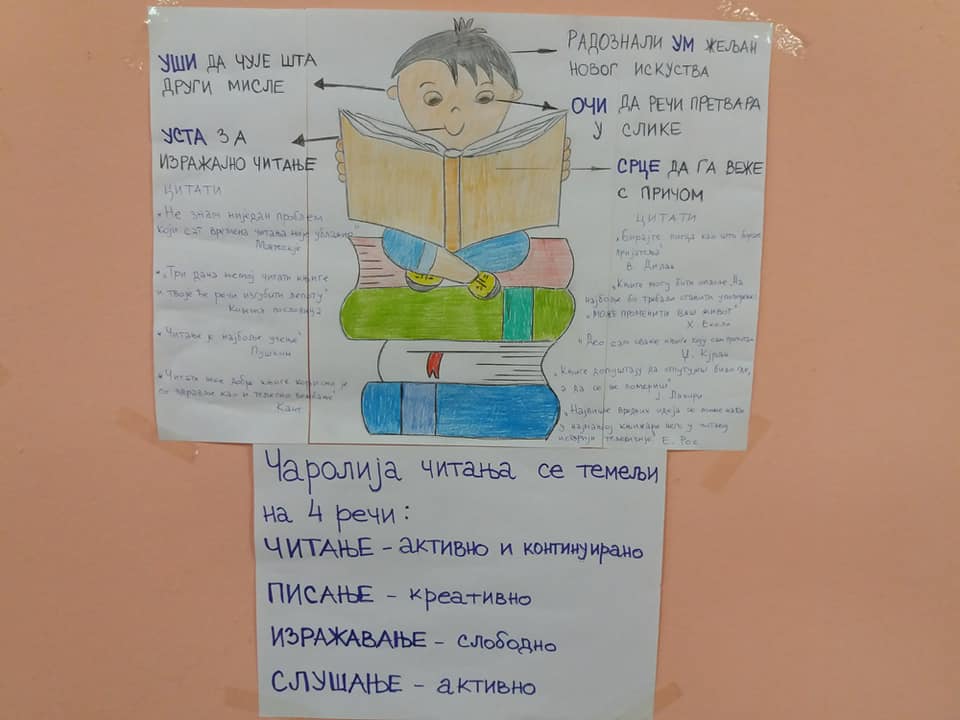 УШИ ДА ЧУЈЕ ШТА
ДРУГИ МИСЛЕ
УСТА ЗА
ИЗРАЖАЈНО ЧИТАЊЕ
ЦИТАТИ
"Не знам ниједан проблем
који сат времена читања није ублажио"
Монтескје
"Три дана немој читати књиге
и твоје ће речи изгубити лепоту"
Кинеска пословица
"Читање је најбоље учење"
Пушкин
"Читати добре књиге корисно је
по здравље као и телесно вежбање"
Кант
РАДОЗНАЛИ УМ ЖЕЉАН
НОВОГ ИСКУСТВА
ОЧИ ДА РЕЧИ ПРЕТВАРА
У СЛИКЕ
СРЦЕ ДА ГА ВЕЖЕ
С ПРИЧОМ
ЦИТАТИ
„Бирајте писца као што бирате
пријатеља"
В. Дилан
„Књиге могу бити опасне. На
најбоље би требали ставити упозорење:
"МОЖЕ ПРОМЕНИТИ ВАШ ЖИВОТ"
Х.
"Део сам сваке књиге коју сам прочитао"
„Књиге допуштају да отпутујеш било где,
а да се не помериш"
Ј. Лахири
„Највише вредних идеја се може наћи
у најмањој књижари него у читавој
историји телевизије" Е. Рос
Чаролија читања се темељи
на 4 речи:
ЧИТАЊЕ - активно и континуирано
ПИСАЊЕ - креативно
ИЗРАЖАВАЊЕ - слободно
СЛУШАЊЕ - активно